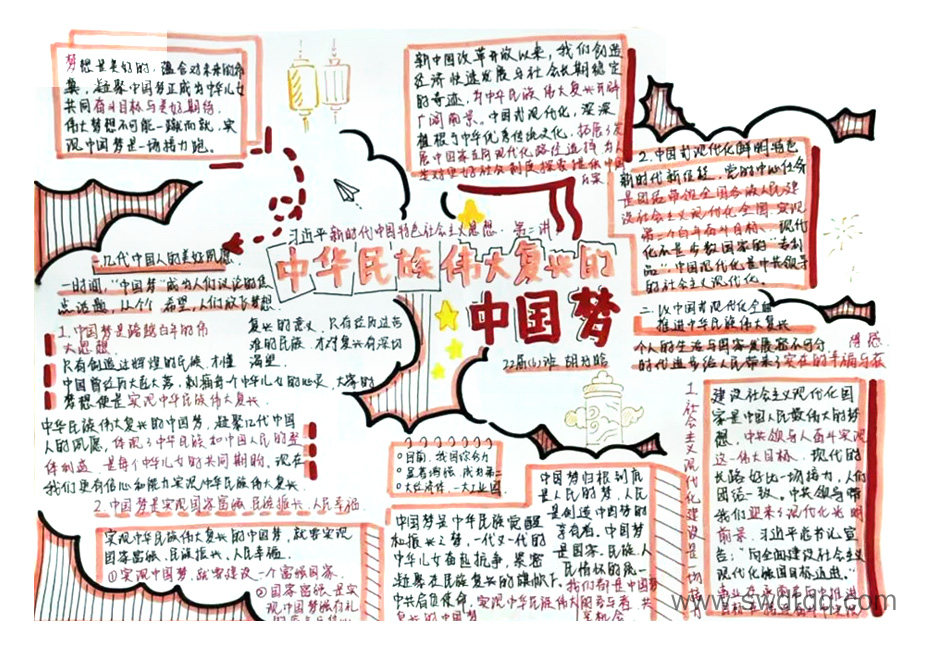 梦想是美好的,蕴含对未来的希
冀,凝聚中国梦正成为中华儿女
共同奋斗目标与美好期待。
伟大梦想不可能一蹴而就,实
现中国梦是一场接力跑。
新中国改革开放以来,我们创造
经济快速发展与社会长期稳定
的奇迹,为中华民族伟大复兴开辟
广阔前景。中国式现代化,深深
植根于中华优秀传统文化,拓展了发
展中国家走向现代化路径选择,为人
类对更好社会制度探索提供中国
方案
2.中国式现代化鲜明特色
新时代新征程,党的中心任务
是团结带领全国各族人民建
设社会主义现代化全国实现
第二个百年奋斗目标,现代
化不是少数国家的“专利
品”中国现代化是中共领导
的社会主义现代化
习近平新时代中国特色社会主义思想·第二讲
中华民族伟大复兴的
中国梦
一.几代中国人的美好夙愿
一时间,“中国梦”成为人们议论的焦
点话题,
希望,人们放飞梦想。
1.中国梦是跨越百年的伟
大思想
只有创造过辉煌的民族,才懂
复兴的意义,只有经历过苦
难的民族,才对复兴有深切
渴望
中国曾经历大起大落,
每个中华儿女的心灵,
梦想便是实现中华民族伟大复兴。
中华民族伟大复兴的中国梦,凝聚几代中国
人的夙愿,体现了中华民族和中国人民的整
体利益,是每个中华儿女的共同期盼,现在
我们更有信心和能力实现中华民族伟大复兴。
2.中国梦是实现国家富强,民族振兴,人民幸福
实现中华民族伟大复兴的中国梦,就要实现
国家富强、民族振兴、人民幸福。
①实现中国梦,就要建设一个富强国家。
②国家富强,是实
现中国梦
二.以中国式现代化全面
推进中华民族伟大复兴
个人的生活与国家发展密不可分
时代进步给人民带来了实在的幸福与获
得感
1.社会主义现代化建设是一场接
建设社会主义现代化国
家是中国人民最伟大的梦
想,中共领导人奋斗实现
这一伟大目标,现代的
长路好比一场接力,人们
团结一致。中共领导带
我们迎来了现代化光明
前景,习近平总书记宣
告:“向全面建设社会主义
现代化强国目标迈进。”
中国梦是中华民族觉醒
和振兴之梦,一代又一代的
中华儿女奋起抗争,紧密
凝聚在民族复兴的旗帜下。
中共肩负使命,实现中华民族伟大
复兴的中国梦
中国梦归根到底
是人民的梦,人民
是创造中国梦的
享有者。中国梦
是国家、民族、人
民情怀的统一
我们都是中国梦
www.swdrdg.com